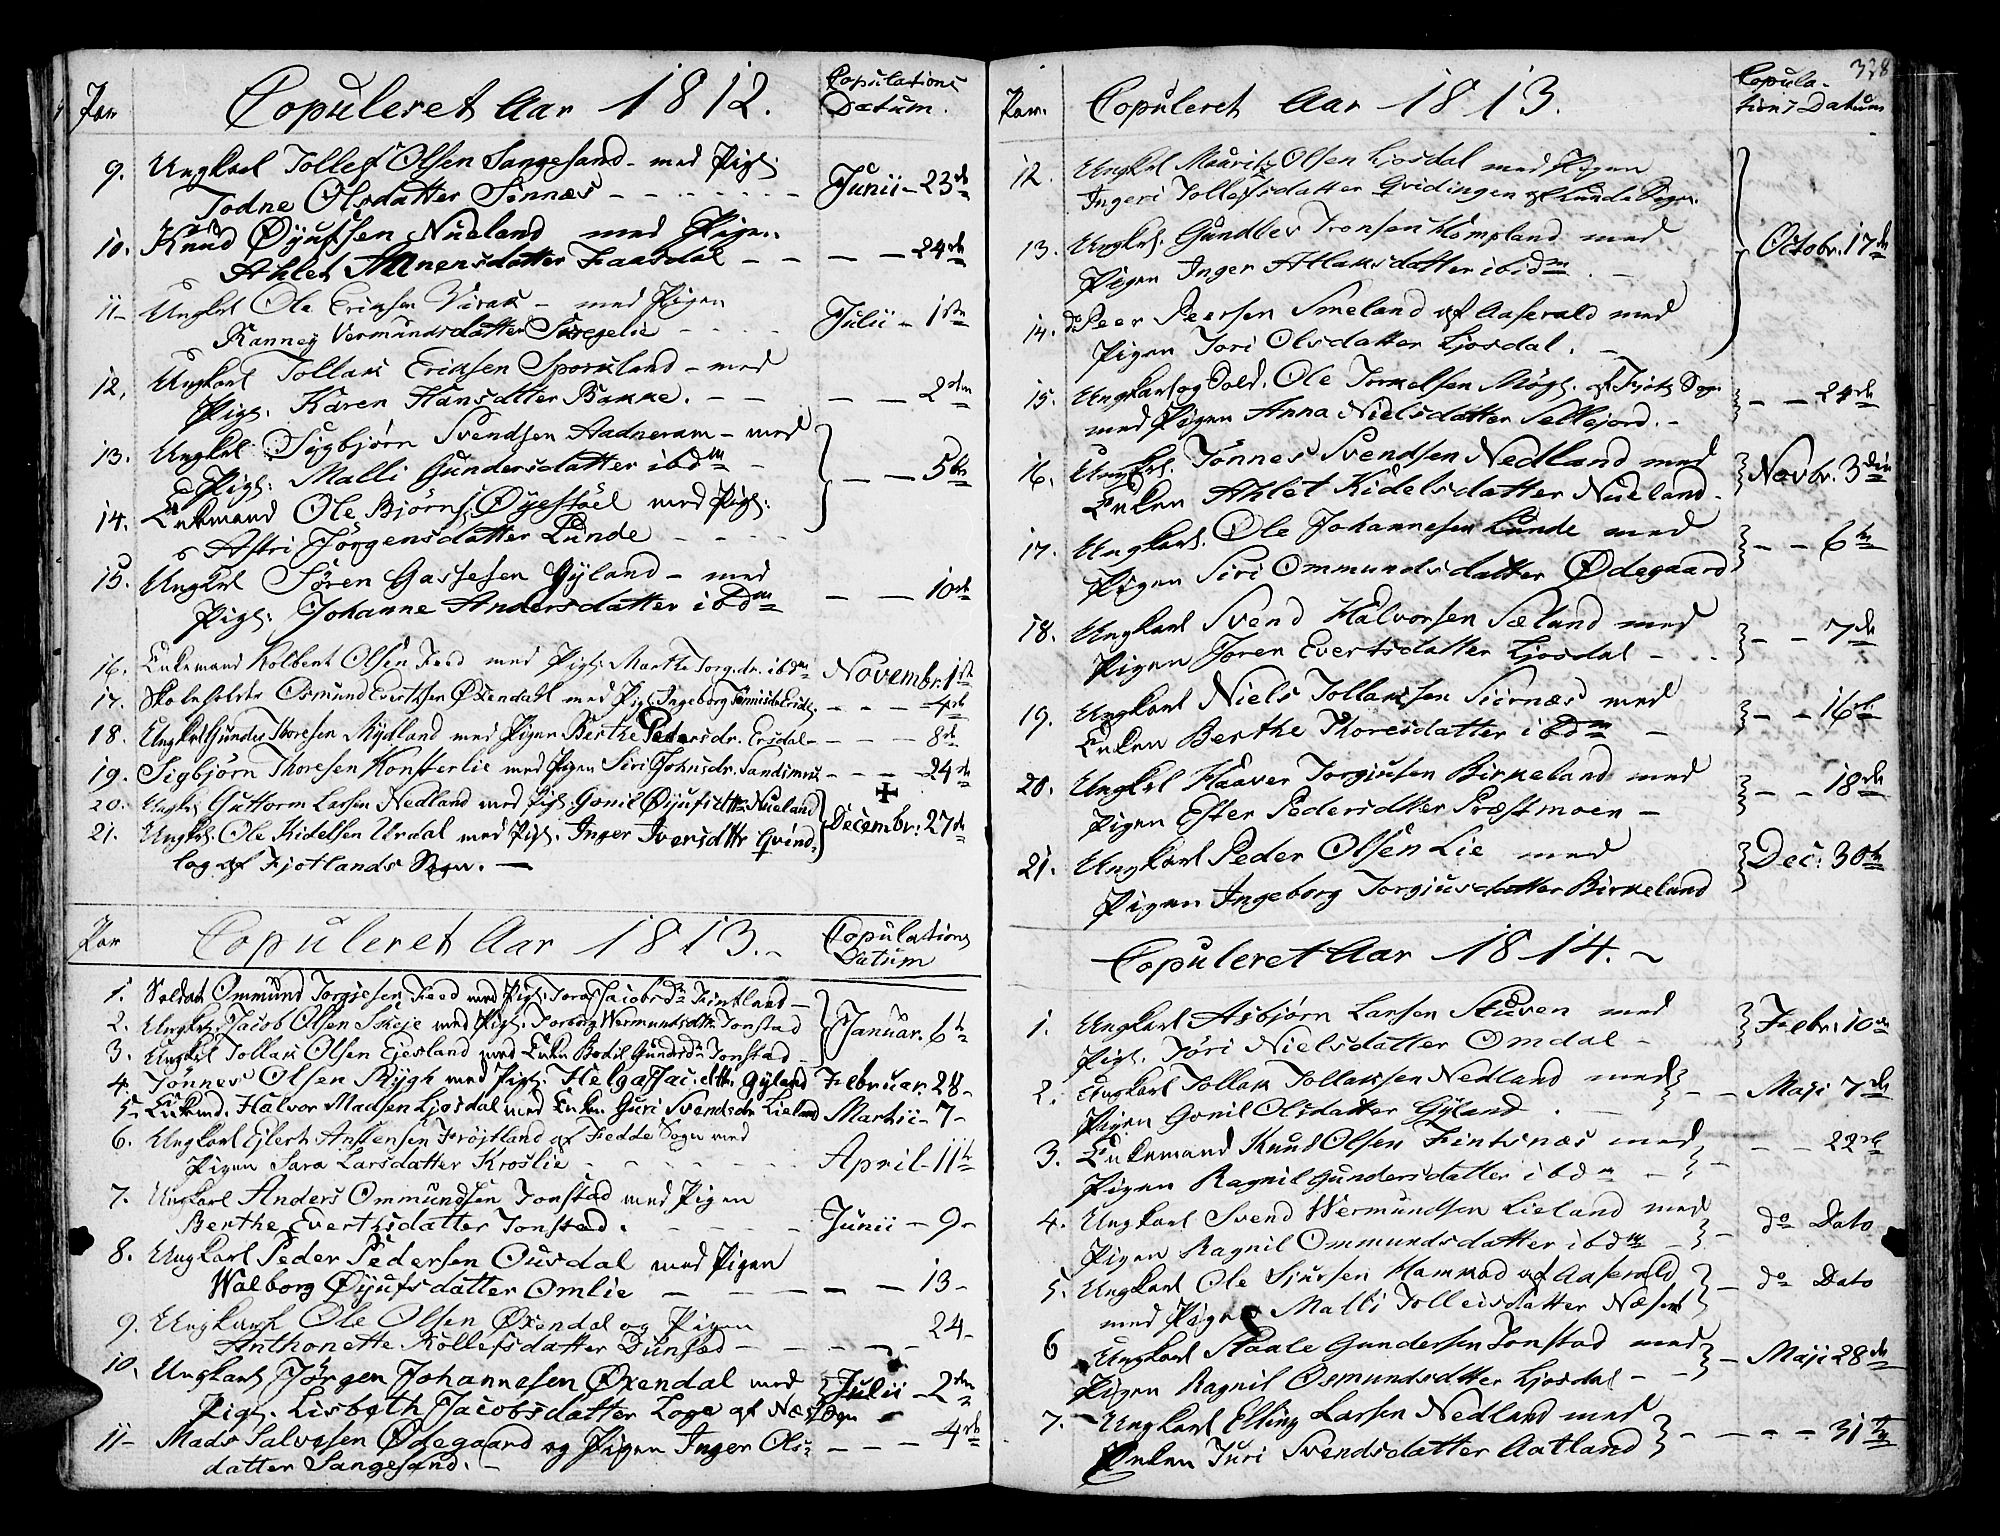 Par Copuleret Aar 1812. Copulations Datum.
9. Ungkarl Tollef Olsen Sangesand - med Pig:
Todne Olsdatter Sinnæs - - - - - - Junii - 23de
10. Knud Øyufsen Nueland med Pigen
Ahlet Atlnersdatter Faasdal - - - - 24de
11 - Ungkrl Ole Eriksen Virak - med Pigen
Ranney Vermundsdatter Siregelie - - - - Julii - 1ste
12, Ungkarl Tollak Eriksen Sporkland - med
Pig: Karen Hansdatter Bakke. - - - - 2den
13. Ungkrl Sigbjørn Svendsen Aadneram - med
Pig: Malli Gundersdatter ibdm -
14. Enkemand Ole Bjørns: Øyestøel med Pig: - - 5te
Astri Jørgensdatter Lunde - - - -
15. Ungkrl Søren Gassesen Gyland - med
Pig: Johanne Andersdatter ibdm - - 10de
16. Enkemand Kolbent Olsen Feed med Pig: Marthe Torg.dr. ibdm Novembr. 1ste
17. Skoleholder Osmund Evertsen Øxendal med Pig: Ingeborg - - - 4de
18. Ungkrl Gunder Thoresen Rydland med Pigen Berthe Pedersdr. Ersdal - - - 8de
19. Sigbjørn Thoresen Konsterlie med Pigen Siri Johnsdr. Sandsmrk - - - 24de
20. Ungkrl Guttorm Larsen Nedland med Pig: Gonil Øyufsdttr Nueland
21. Ungkrl Ole Kidelsen Urdal med Pig: Inger Iversdttr Qvind- Decembr: 27de
log af Fjotlands Sogn. -
Par Copuleret Aar 1813. - Copulations Datum
1. Soldat Ommund Torgiesen Feed med Pig: Toras Jacobsdr Fintland -
2. Ungkrl: Jacob Olsen Skeje med Pig: Torborg Wermundsdtr Tonstad Januar. 6te
3. Ungkrl Tollak Olsen Ejesland med Enke Bodil Gundersdr Tonstad -
4. Tønnes Olsen Rygh med Pig: Helga Jac:dttr. Gyland Februar. 28 -
5. Enkemd. Halvor Madsen Ljosdal med Enken Guri Svendsdr Lieland Martii - 7 -
6. Ungkarl Ejlert Anstensen Frøjtland af Fedde Sogn med
Pigen Sara Larsdatter Kroslie - - - - - - April - 11te
7. Ungkarl Anders Ommundsen Tonstad med Pigen
Berthe Evertsdatter Tonstad. - - - - - Junii - 9 -
8. Ungkarl Peder Pedersen Ousdal med Pigen
Walborg Øyufsdatter Omlie - - - - - 13 -
9. Ungkarl Ole Olsen Øxendal og Pigen
Anthonette Rollefsdatter Dunsæd - - - - - 24 -
10. Ungkarl Jørgen Johannesen Øxendal med
Pig: Lisbeth Jacobsdatter Loge af Næs Sogn Julii - 2den
11 - Mads Salvesen Ødegaard og Pigen Inger Ols=
datter Sangesand. - - - - 4de
338
Par. Copuleret Aar 1813. Copula- tions Datum
12. Ungkrl Mauritz Olsen Ljosdal med Pigen
Ingeri Tollefsdatter Qvidingen af Lunde Sogn.
13. Ungkrl. Gundleu Tronsen Kompland med
Pigen Inger Atlaksdatter ibidm. - Octobr. 17de
14. do Peer Peersen Smeland af Aaserald med
Pigen Jori Olsdatter Ljosdal. -
15. Ungkarl og Sold. Ole Torkelsen Møgl. af Fjotl: Sogn
med Pigen Anna Nielsdatter Sellejord. - - - 24de
16. Ungkrl. Tønnes Svendsen Nedland med
Enken Ahlet Kidelsdatter Nueland. Novbr. 3die
17. Ungkarl. Ole Johannesen Lunde med
Pigen Siri Ommundsdatter Ødegaard - - 6te
18. Ungkarl Svend Halvorsen Sæland med
Pigen Joren Evertsdatter Ljosdal - - - - 7de
19. Ungkarl Niels Tollaksen Siernæs med
Enken Berthe Thoresdatter ibdm - - - 16de
20. Ungkrl Haaver Torgiusen Birkeland med
Pigen Ester Pedersdtter Præstmoen - - - 18de
21. Ungkarl Peder Olsen Lie med
Pigen Ingeborg Torgjusdatter Birkeland Dec: 30te
Copuleret Aar 1814. -
1. Ungkarl Asbjørn Larsen Stuven med
Pig: Jøri Nielsdatter Omdal - Febr: 10de
2. Ungkarl Tollak Tollaksen Nedland med
Pigen Gonil Olsdatter Gyland. - - Maji 7de
3. Enkemand Knud Olsen Fintsnæs med
Pigen Ragnil Gundersdatter ibdm - - - - 22de
4. Ungkarl Svend Wermundsen Lieland med
Pigen Ragnil Ommundsdatter ibdm - - do Dato
5. Ungkarl Ole Sjursen Hamkod af Aaserald
med Pigen Malli Tolleisdatter Næset - do Dato
6 Ungkarl Staale Gundersen Tonstad med
Pigen Ragnil Osmundsdtter Ljosdal - - - Maji 28de
7. Ungkarl Elling Larsen Nedland med
Enken Juri Svendsdatter Aatland - - - - 31te